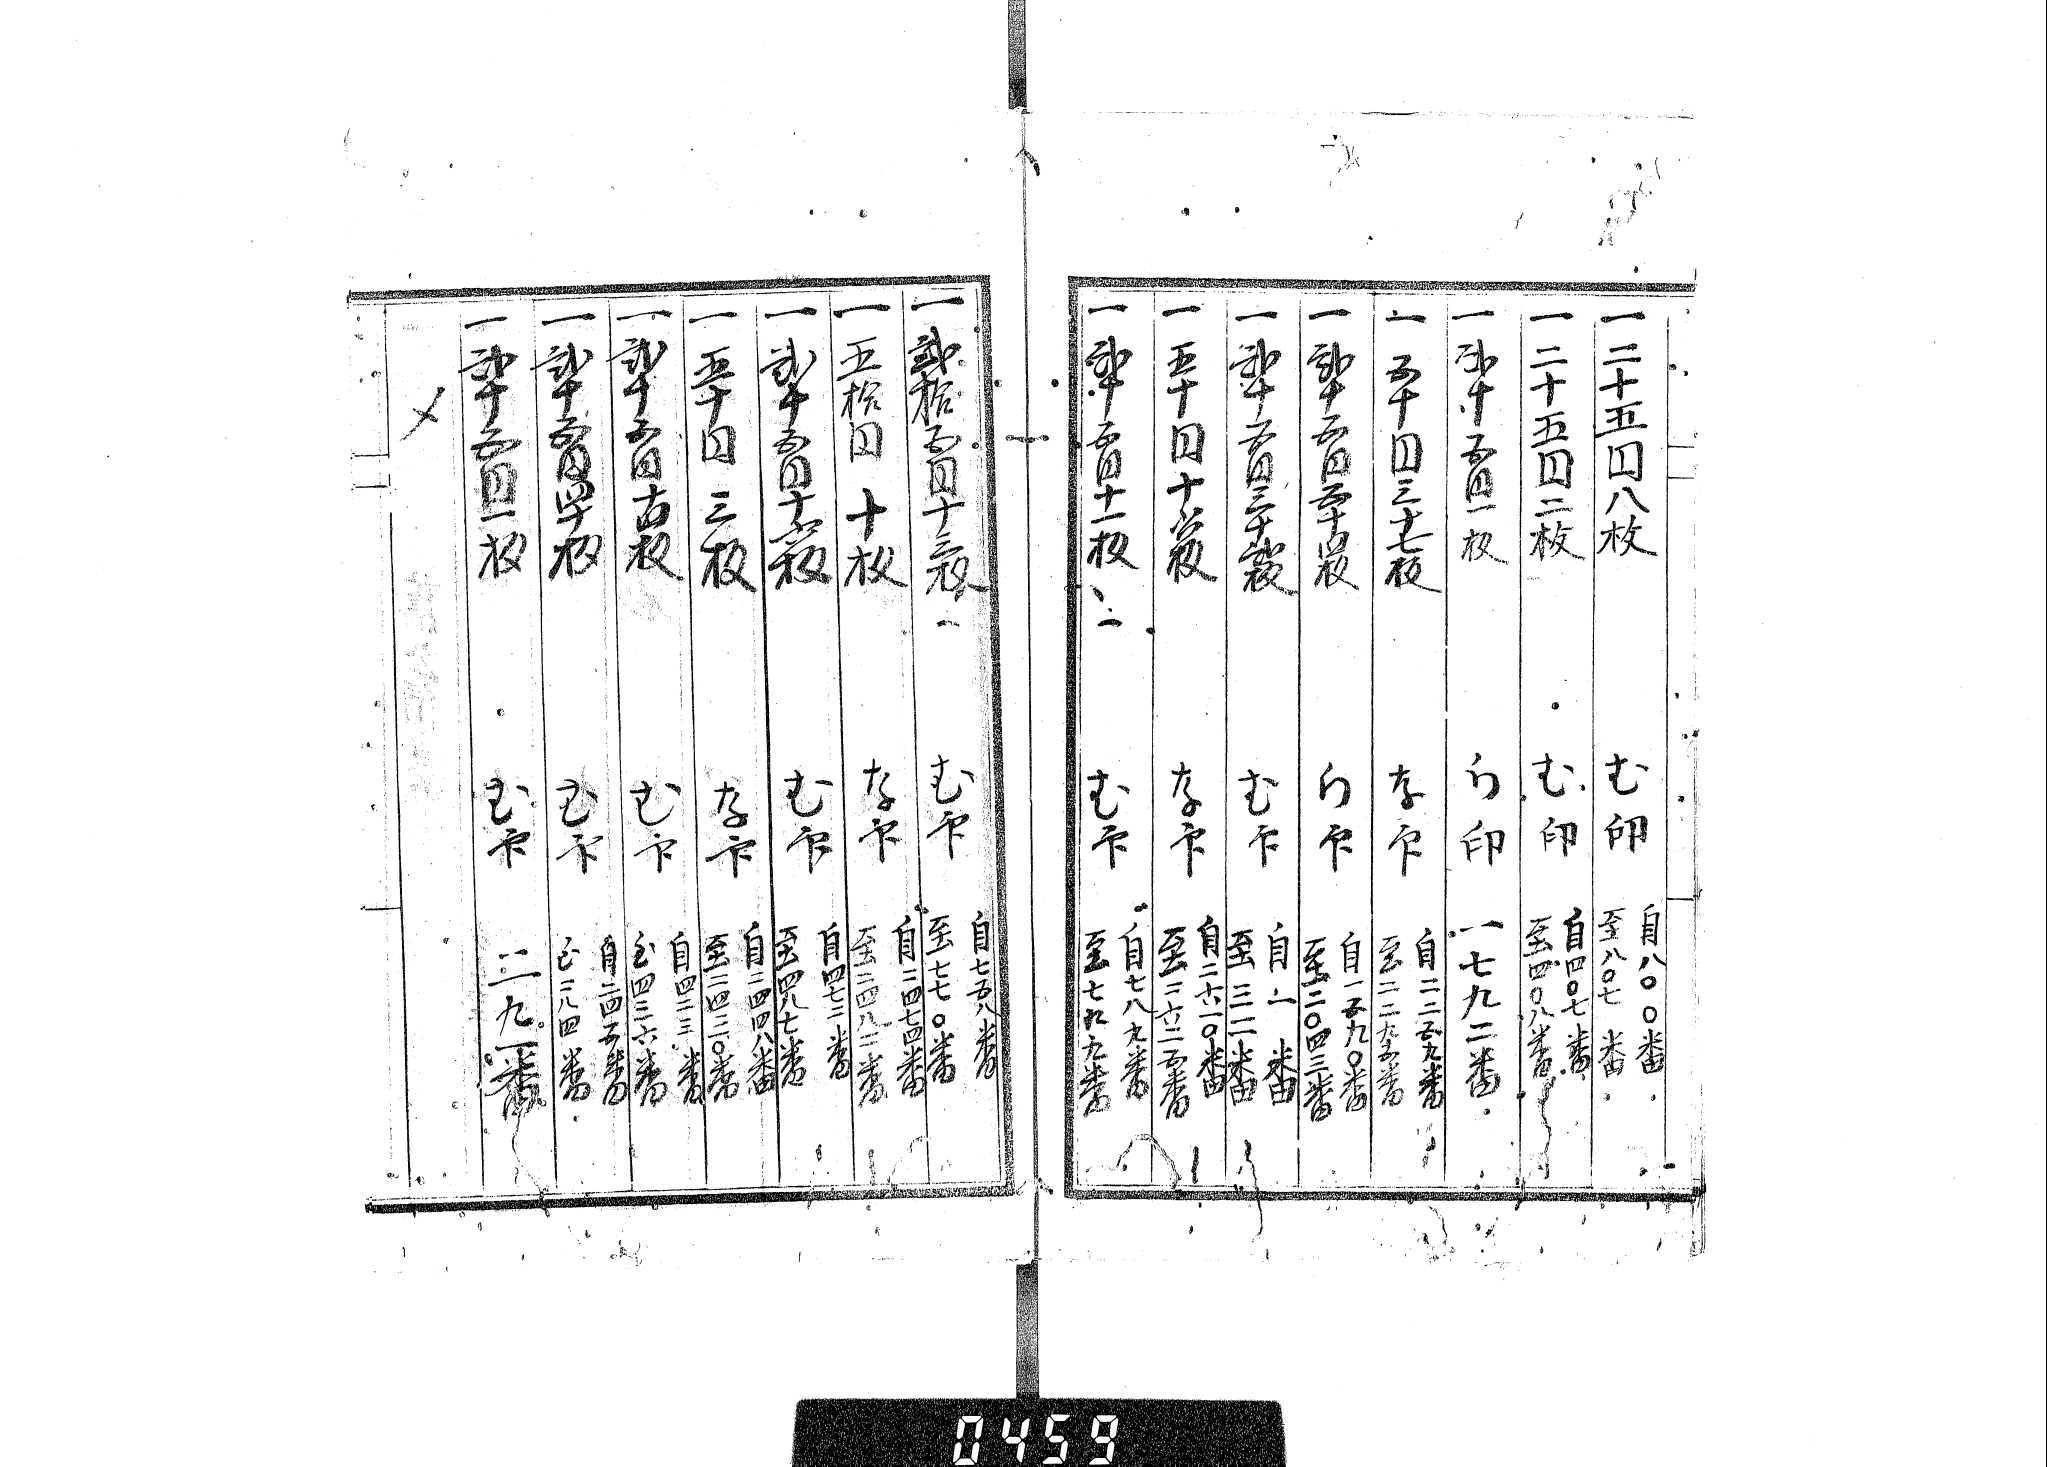 一二十五円八枚 む印 自八〇〇番
至八〇七番
一二十五円二枚 む印 自四〇七番
至四〇八番
一弐十五円一枚 ろ印 一七九二番
一五十円三十七枚 な印 自二二五九番
至二二九五番
一弐十五円五十四枚 ろ印 自一五九〇番
至二〇四三番
一弐十五円三十弐枚 む印 自一番
至三二番
一五十円十六枚 な印 自二六一〇番
至二六二五番
一弐十五円十一枚 む印 自七八九番
至七九九番
一弐拾五円十三枚 む印 自七五八番
至七七〇番
一五拾円十枚 な印 自二四七四番
至二四八二番
一弐十五円十六枚 む印 自四七二番
至四八七番
一五十円三枚 な印 自二四四八番
至二四三〇番
一弐十五円十四枚 む印 自四二三番
至四三六番
一弐十五円四十枚 む印 自二四五番
至二八四番
一弐十五円一枚 む印 二九一番
0459